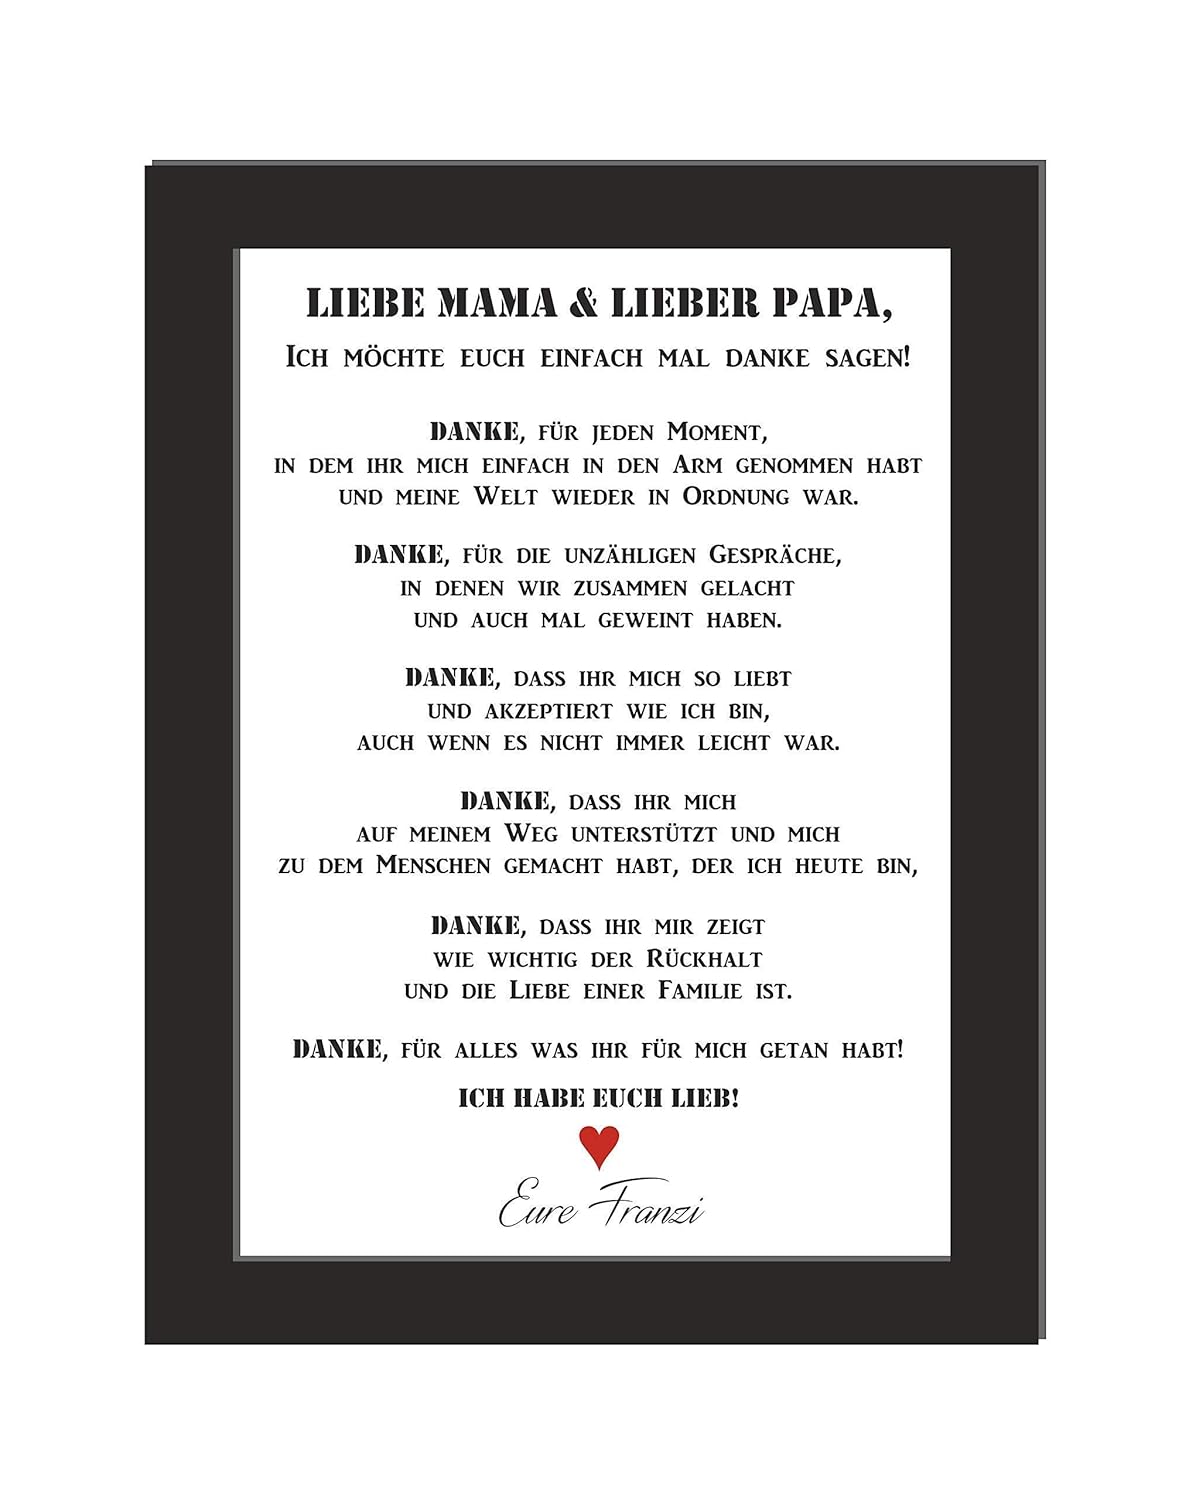 LIEBE MAMA & LIEBER PAPA,
ICH MÖCHTE EUCH EINFACH MAL DANKE SAGEN!
DANKE, FÜR JEDEN MOMENT,
IN DEM IHR MICH EINFACH IN DEN ARM GENOMMEN HABT
UND MEINE WELT WIEDER IN ORDNUNG WAR.
DANKE, FÜR DIE UNZÄHLIGEN GESPRÄCHE,
IN DENEN WIR ZUSAMMEN GELACHT
UND AUCH MAL GEWEINT HABEN.
DANKE, DASS IHR MICH SO LIEBT
UND AKZEPTIERT WIE ICH BIN,
AUCH WENN ES NICHT IMMER LEICHT WAR.
DANKE, DASS IHR MICH
AUF MEINEM WEG UNTERSTÜTZT UND MICH
ZU DEM MENSCHEN GEMACHT HABT, DER ICH HEUTE BIN,
DANKE, DASS IHR MIR ZEIGT
WIE WICHTIG DER RÜCKHALT
UND DIE LIEBE EINER FAMILIE IST.
DANKE, FÜR ALLES WAS IHR FÜR MICH GETAN HABT!
ICH HABE EUCH LIEB!
Eure Franzi